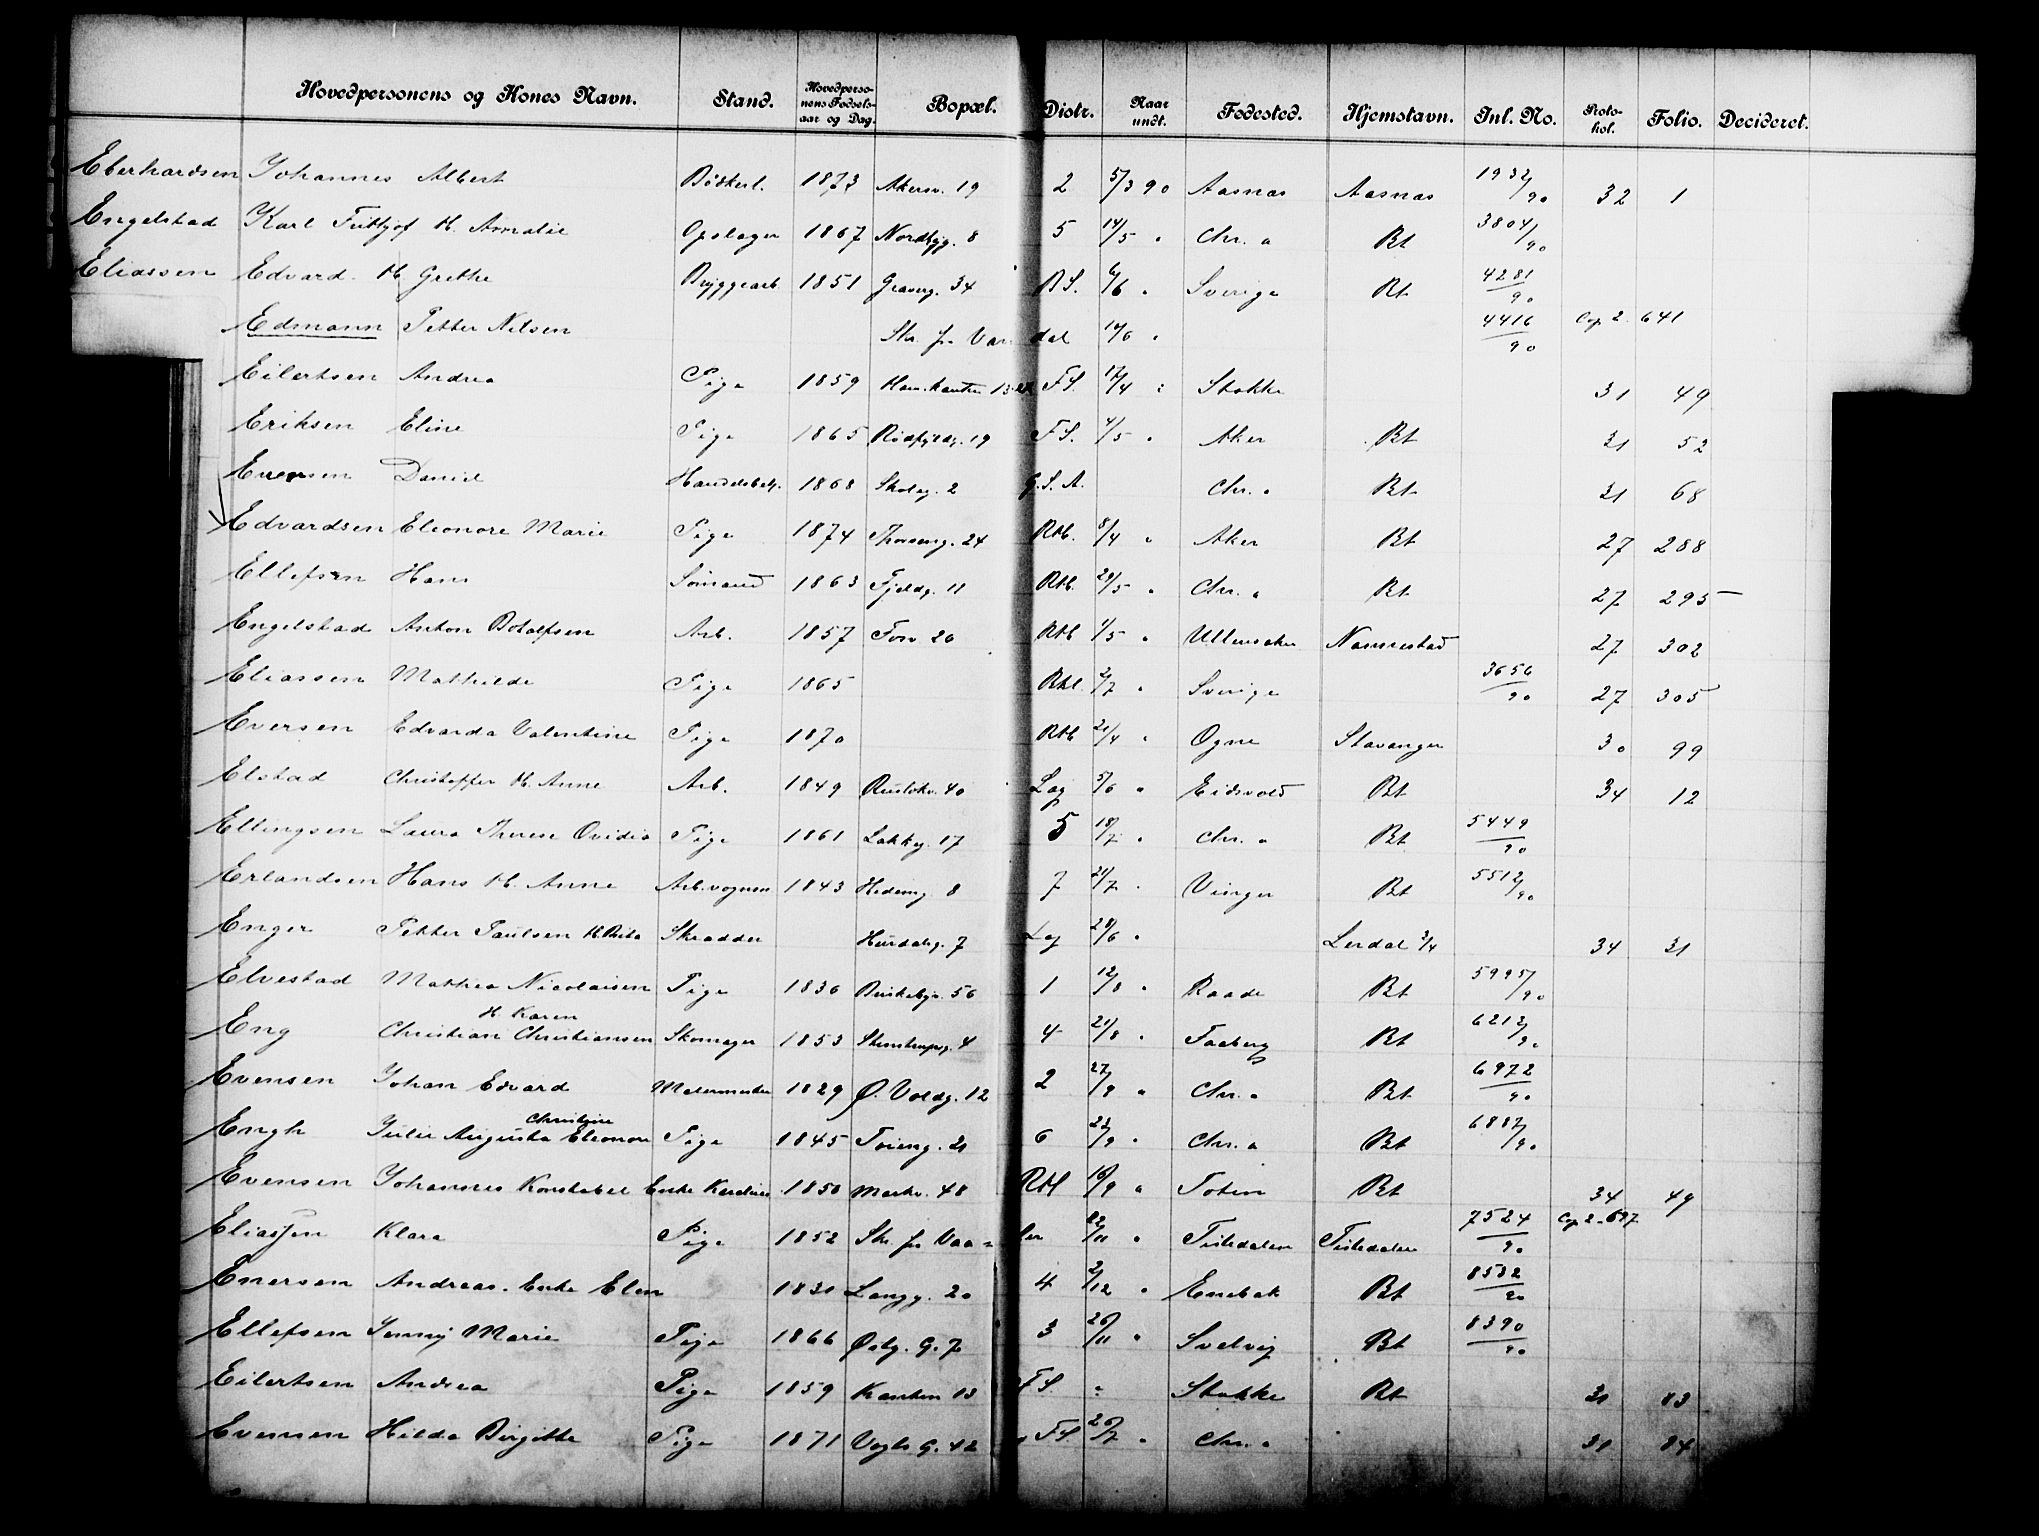 Hovedpersonens og Kones Navn. Stand. Hovedpersonens Fødselsaar og Dag. Bopæl. Distr. Naar undt. Fødested. Hjemstavn. Inl. No. Protokol. Folio. Decideret.
Eberhardsen Johannes Albert Bödkerl. 1873 Akersv. 19 2 5/3 90 Aasnæs Aasnæs 1932/90 32 1
Engelstad Karl Fritjof H. Amalie Opslager 1867 Nordbyg. 8 5 14/5 " Chr. a Bt 3804/90
Eliassen Edvard H. Grethe Bryggearb 1851 Graverg. 34 BS. 6/6 " Sverige Bt 4281/90
Edmann Petter Nilsen Skr. fr. Værdal 14/6 " 4416/90 Cop 2. 641
Eilertsen Andrea Pige 1859 FS. 17/4 " Stokke 31 49
Eriksen Eline Pige 1865 Rödfyldg. 19 FS. 4/5 " Aker Bt 31 52
Daniel Handelsbetj. 1868 Skoleg. 2 G.S.A. Chr. a Bt 31 68
Edvardsen Eleonore Marie Pige 1874 Thorseng. 24 Rtb. 8/4 " Aker Bt 27 288
Ellefsen Hans Sömand 1863 Fjeldg. 11 Rtb. 29/5 " Chr. a Bt 27 295
Engelstad Anton Botolfsen Arb. 1857 Torv 20 Rtb 1/5 " Ullensaker Nannestad 27 302
Eliassen Mathilde Pige 1865 Rtb. 2/7 " Sverige 3656/90 27 305
Eversen Edvarda Valentine Pige 1870 Rtb 21/4 " Ogne Stavanger 30 99
Elstad Christoffer H. Anne Arb. 1849 Ruslökv. 40 Lag 5/6 " Eidsvold Bt 34 12
Ellingsen Laura Therese Ovidia Pige 1861 Lakkeg. 17 5 18/7 " Chr. a Bt 5449/90
Erlandsen Hans H. Anne Arb.vognm 1843 Hedemg. 8 7 21/7 " Vinger Bt 5512/90
Enger Petter Paulsen H. Skrædder Hurdalsg. 7 Lag 28/6 " Lerdal 3/4 34 31
Elvestad Mathea Nicolaisen Pige 1836 Birkebjr. 56 1 12/8 " Raade Bt 5995/90
H. Karen
Eng Christian Christiansen Skomager 1853 Stenstrupg. 4 4 21/8 " Faaberg Bt 6212/90
Evensen Johan Edvard Malermester 1829 Ø. Voldg. 12 2 27/9 " Chr. a Bt 6972/90
Christine
Engh Julie Augusta Eleonore Pige 1845 Töieng. 21 6 23/9 " Chr. a Bt 6887/90
Evensen Johannes Konstabel Enke Karoline 1850 Markv. 48 Rtb 10/9 " Toten Bt 34 49
Eliassen Klara Pige 1852 Skr. fr. Vaaler 22/11 " Tistedalen Tistedalen 7524/90 Cop 2-697
Enersen Andreas. Enke Elen 1831 Langg. 20 4 2/12 " Enebak Bt 8532/90
Ellefsen Jenny Marie Pige 1866 Østg. G. 7 3 26/11 " Svelvig Bt 8390/90
Eilertsen Andrea Pige 1859 Kanten 13 FS. " Stokke Bt 31 83
Evensen Hilda Birgitte Pige 1871 Vogts G. 42 FS. 26/7 " Chr. a 31 84